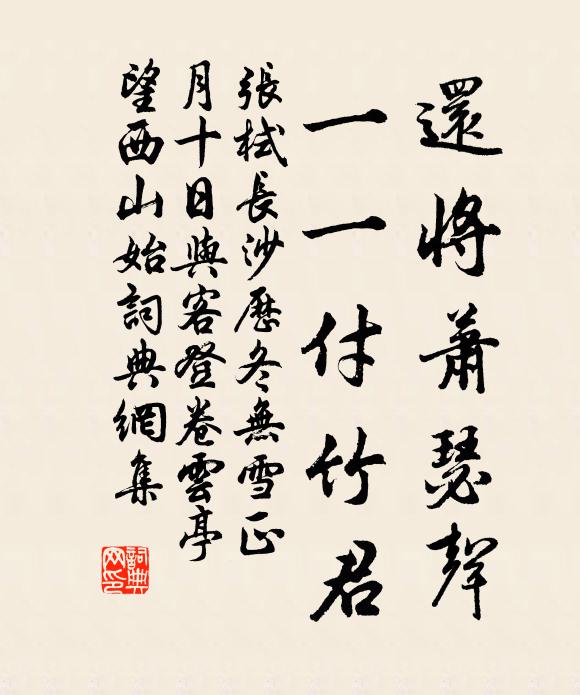 還將蕭瑟聲
一一付竹君
張栻長沙歷冬無雪正
月十日與客登卷雲亭
望西山始詞典網集
詞典
网印